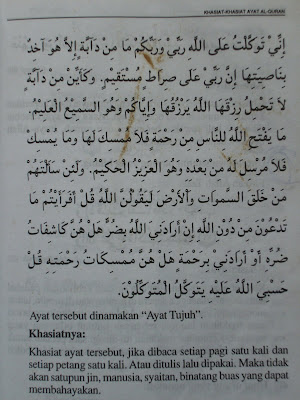 KHASIAT-KHASIAT AYAT AL-QURAN
إِنِّي تَوَكَّلْتُ عَلَى اللَّهِ رَبِّي وَرَبِّكُمْ مَا مِنْ دَآبَّةٍ إِلاَّ هُوَ آخِذٌ
بِنَاصِيَتِهَا إِنَّ رَبِّي عَلَى صِرَاطٍ مُسْتَقِيمٍ. وَكَأَيِّنْ مِنْ دَآبَّةٍ
لاَ تَحْمِلُ رِزْقَهَا اللَّهُ يَرْزُقُهَا وَإِيَّاكُمْ وَهُوَ السَّمِيعُ الْعَلِيمُ.
مَا يَفْتَحِ اللَّهُ لِلنَّاسِ مِنْ رَحْمَةٍ فَلاَ مُمْسِكَ لَهَا وَمَا يُمْسِكْ
فَلاَ مُرْسِلَ لَهُ مِنْ بَعْدِهِ وَهُوَ الْعَزِيزُ الْحَكِيمُ. وَلَئِنْ سَأَلْتَهُمْ
مَنْ خَلَقَ السَّمَوَاتِ وَالْأَرْضَ لَيَقُولُنَّ اللَّهُ قُلْ أَفَرَأَيْتُمْ مَا
تَدْعُونَ مِنْ دُونِ اللَّهِ إِنْ أَرَادَنِيَ اللَّهُ بِضُرٍّ هَلْ هُنَّ كَاشِفَاتُ
ضُرِّهِ أَوْ أَرَادَنِي بِرَحْمَةٍ هَلْ هُنَّ مُمْسِكَاتُ رَحْمَتِهِ قُلْ
حَسْبِيَ اللَّهُ عَلَيْهِ يَتَوَكَّلُ الْمُتَوَكِّلُونَ.
Ayat tersebut dinamakan “Ayat Tujuh”.
Khasiatnya:
Khasiat ayat tersebut, jika dibaca setiap pagi satu kali dan
setiap petang satu kali. Atau ditulis lalu dipakai. Maka tidak
akan satupun jin, manusia, syaitan, binatang buas yang dapat
membahayakan.